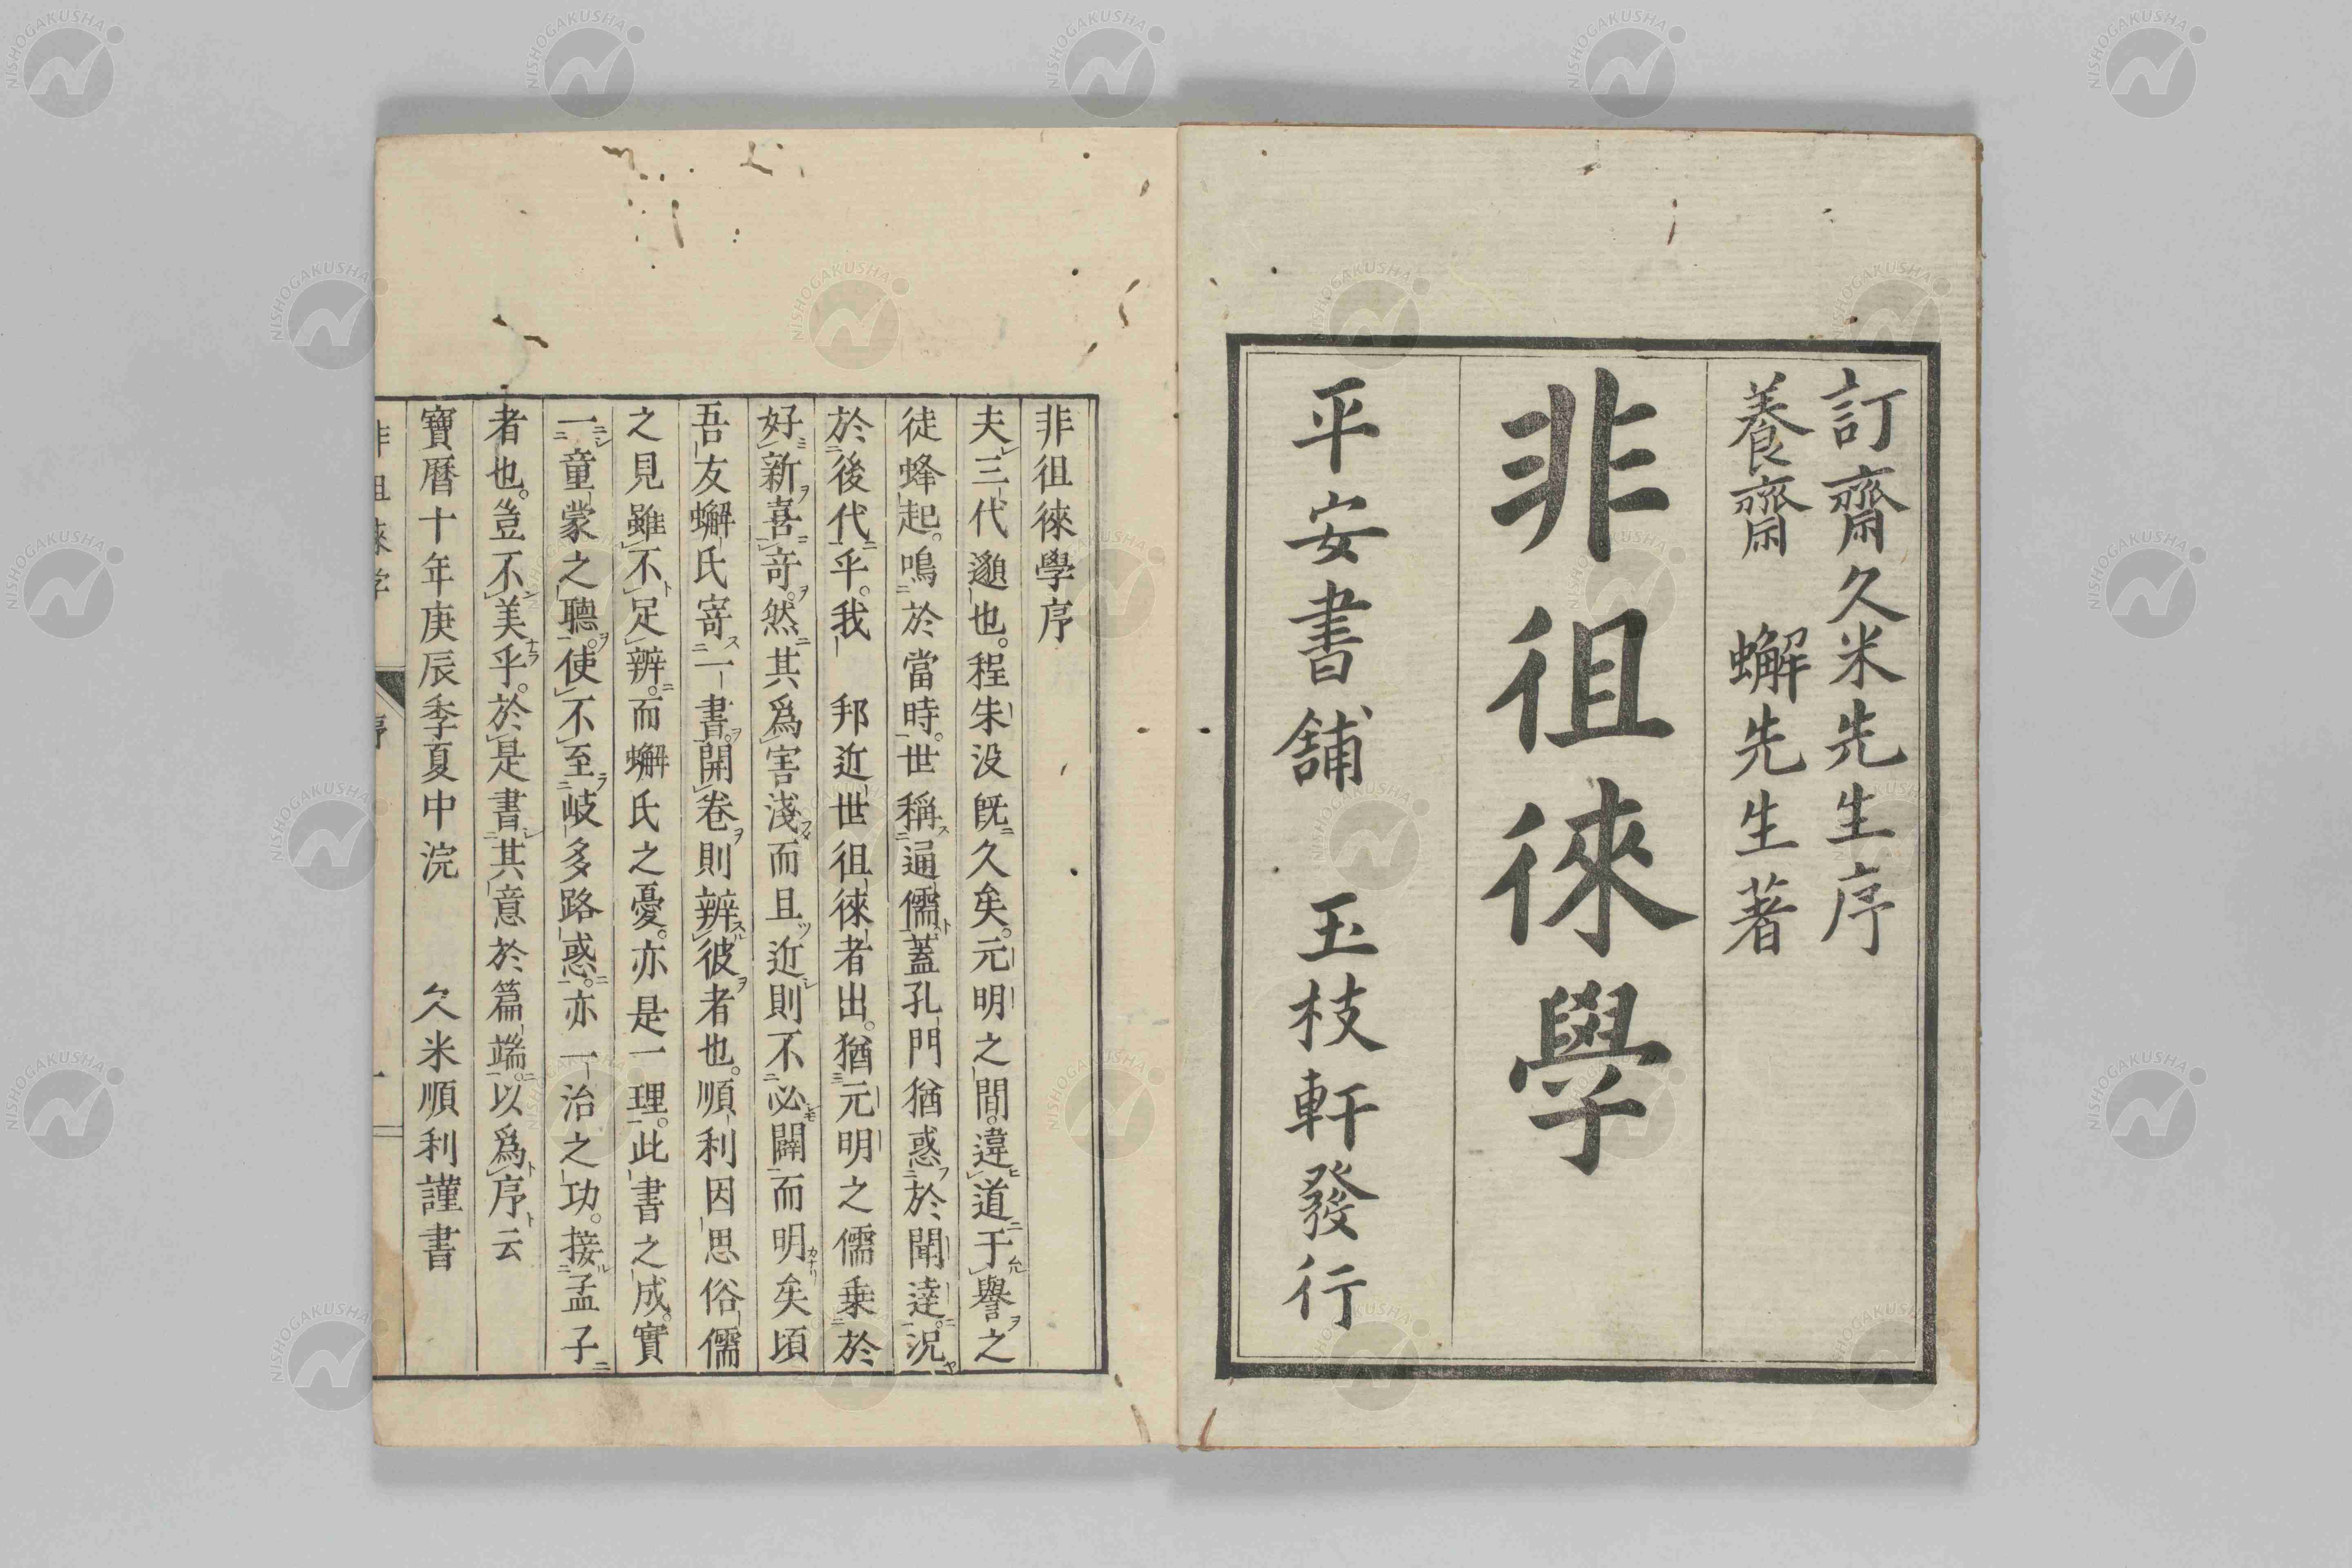 訂齋久米先生序
養齋 蠏先生著
非徂徠學
平安書舗 玉枝軒發行
非徂徠學序
夫三代邈也。程朱没既久矣。元明之間。違道于譽之
徒蜂起。鳴於當時。世稱通儒。蓋孔門猶惑於聞達。況
於後代乎。我 邦近世徂徠者出。猶元明之儒乗於
好新喜竒。然其爲害淺而且近則不必闢而明矣頃
吾友蠏氏寄一書。開卷則辨彼者也。順利因思俗儒
之見雖不足辨。而蠏氏之憂。亦是一理。此書之成。實
一童蒙之聽。使不至岐多路惑。亦一治之功。接孟子
者也。豈不美乎。於是書其意於篇端。以爲序云
寶曆十年庚辰季夏中浣 久米順利謹書
序
一
NISHOGAKUSHA